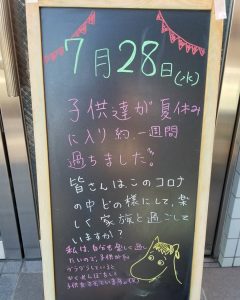 7月28日(水)
子供達が夏休み
に入り約一週間
過ちました
皆さんはこのコロナ
の中どの様にして、楽
しく家族と過ごして
いますか?
私は、自分も楽しく過し
たいので、子供が